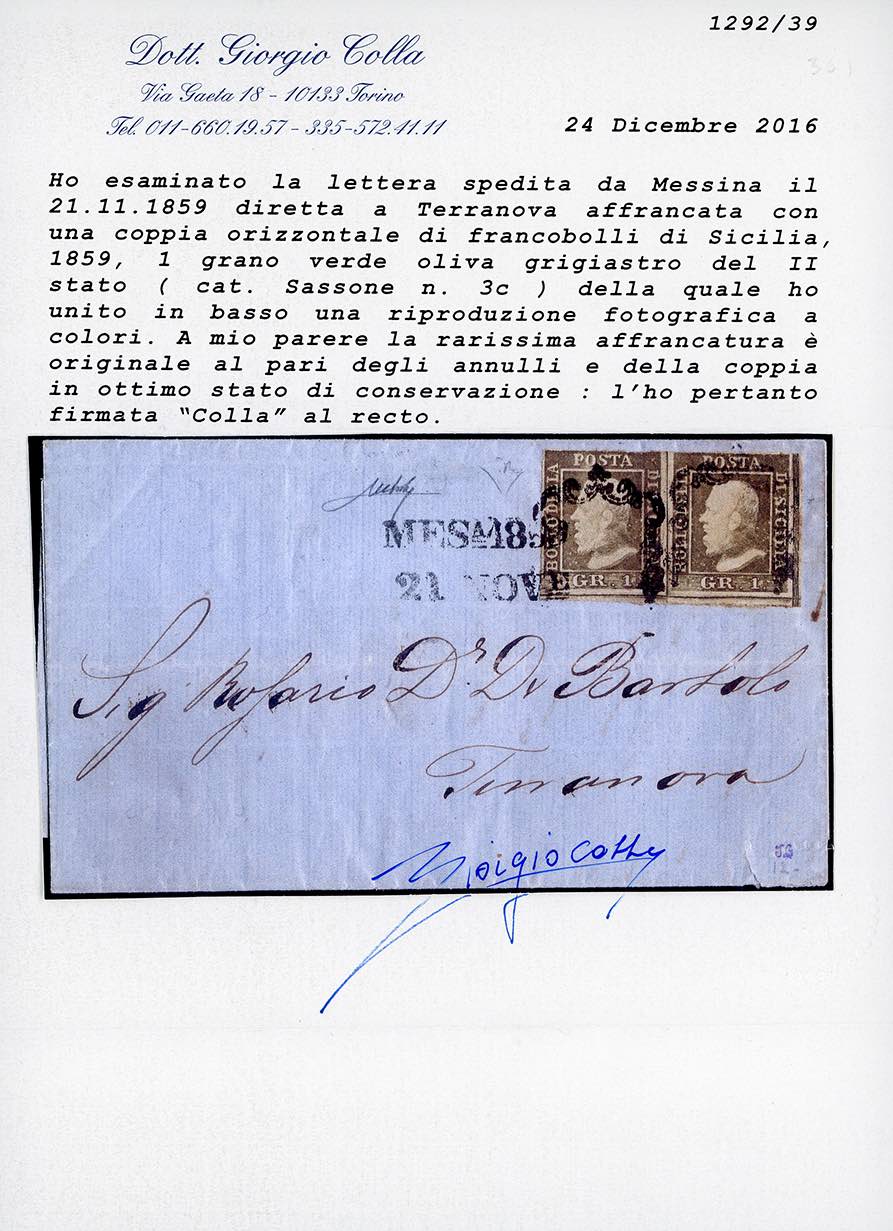 1292/39
Dott. Giorgio Colla
Via Gaeta 18 - 10133 Torino
Tel. 011-660.19.57 - 335-572.11.11
24 Dicembre 2016
Ho esaminato la lettera spedita da Messina il
21.11.1859 diretta a Terranova affrancata con
una coppia orizzontale di francobolli di Sicilia,
1859, 1 grano verde oliva grigiastro del II
stato ( cat. Sassone n. 3c ) della quale ho
unito in basso una riproduzione fotografica a
colori. A mio parere la rarissima affrancatura è
originale al pari degli annulli e della coppia
in ottimo stato di conservazione : l’ho pertanto
firmata “Colla” al recto.
BOLLO DELLA POSTA DI SICILIA GR. 1
BOLLO DELLA POSTA DI SICILIA GR. 1
MESA 1859
21 NOVE
Sig Rosario Dr. Di Bartolo
Terranova
Giorgio Colla